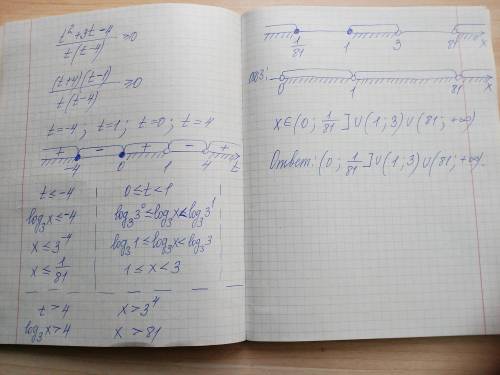 t²+3t-4 / t(t-4) ≥0
(t+4)(t-1) / t(t-4) ≥0
t=-4; t=1; t=0; t=4
+ - + - +
-4 0 1 4 t
t≤-4
log₃x≤-4
x≤3⁻⁴
x≤1/81
0≤t<1
log₃3⁰≤log₃x<log₃3¹
log₃1≤log₃x<log₃3
1≤x<3
t>4 x>3⁴
log₃x>4 x>81
1/81 1 3 81 x
ОДЗ:
0 1 81 x
x∈(0; 1/81]∪(1;3)∪(81;+∞)
Ответ: (0; 1/81]∪(1;3)∪(81;+∞).